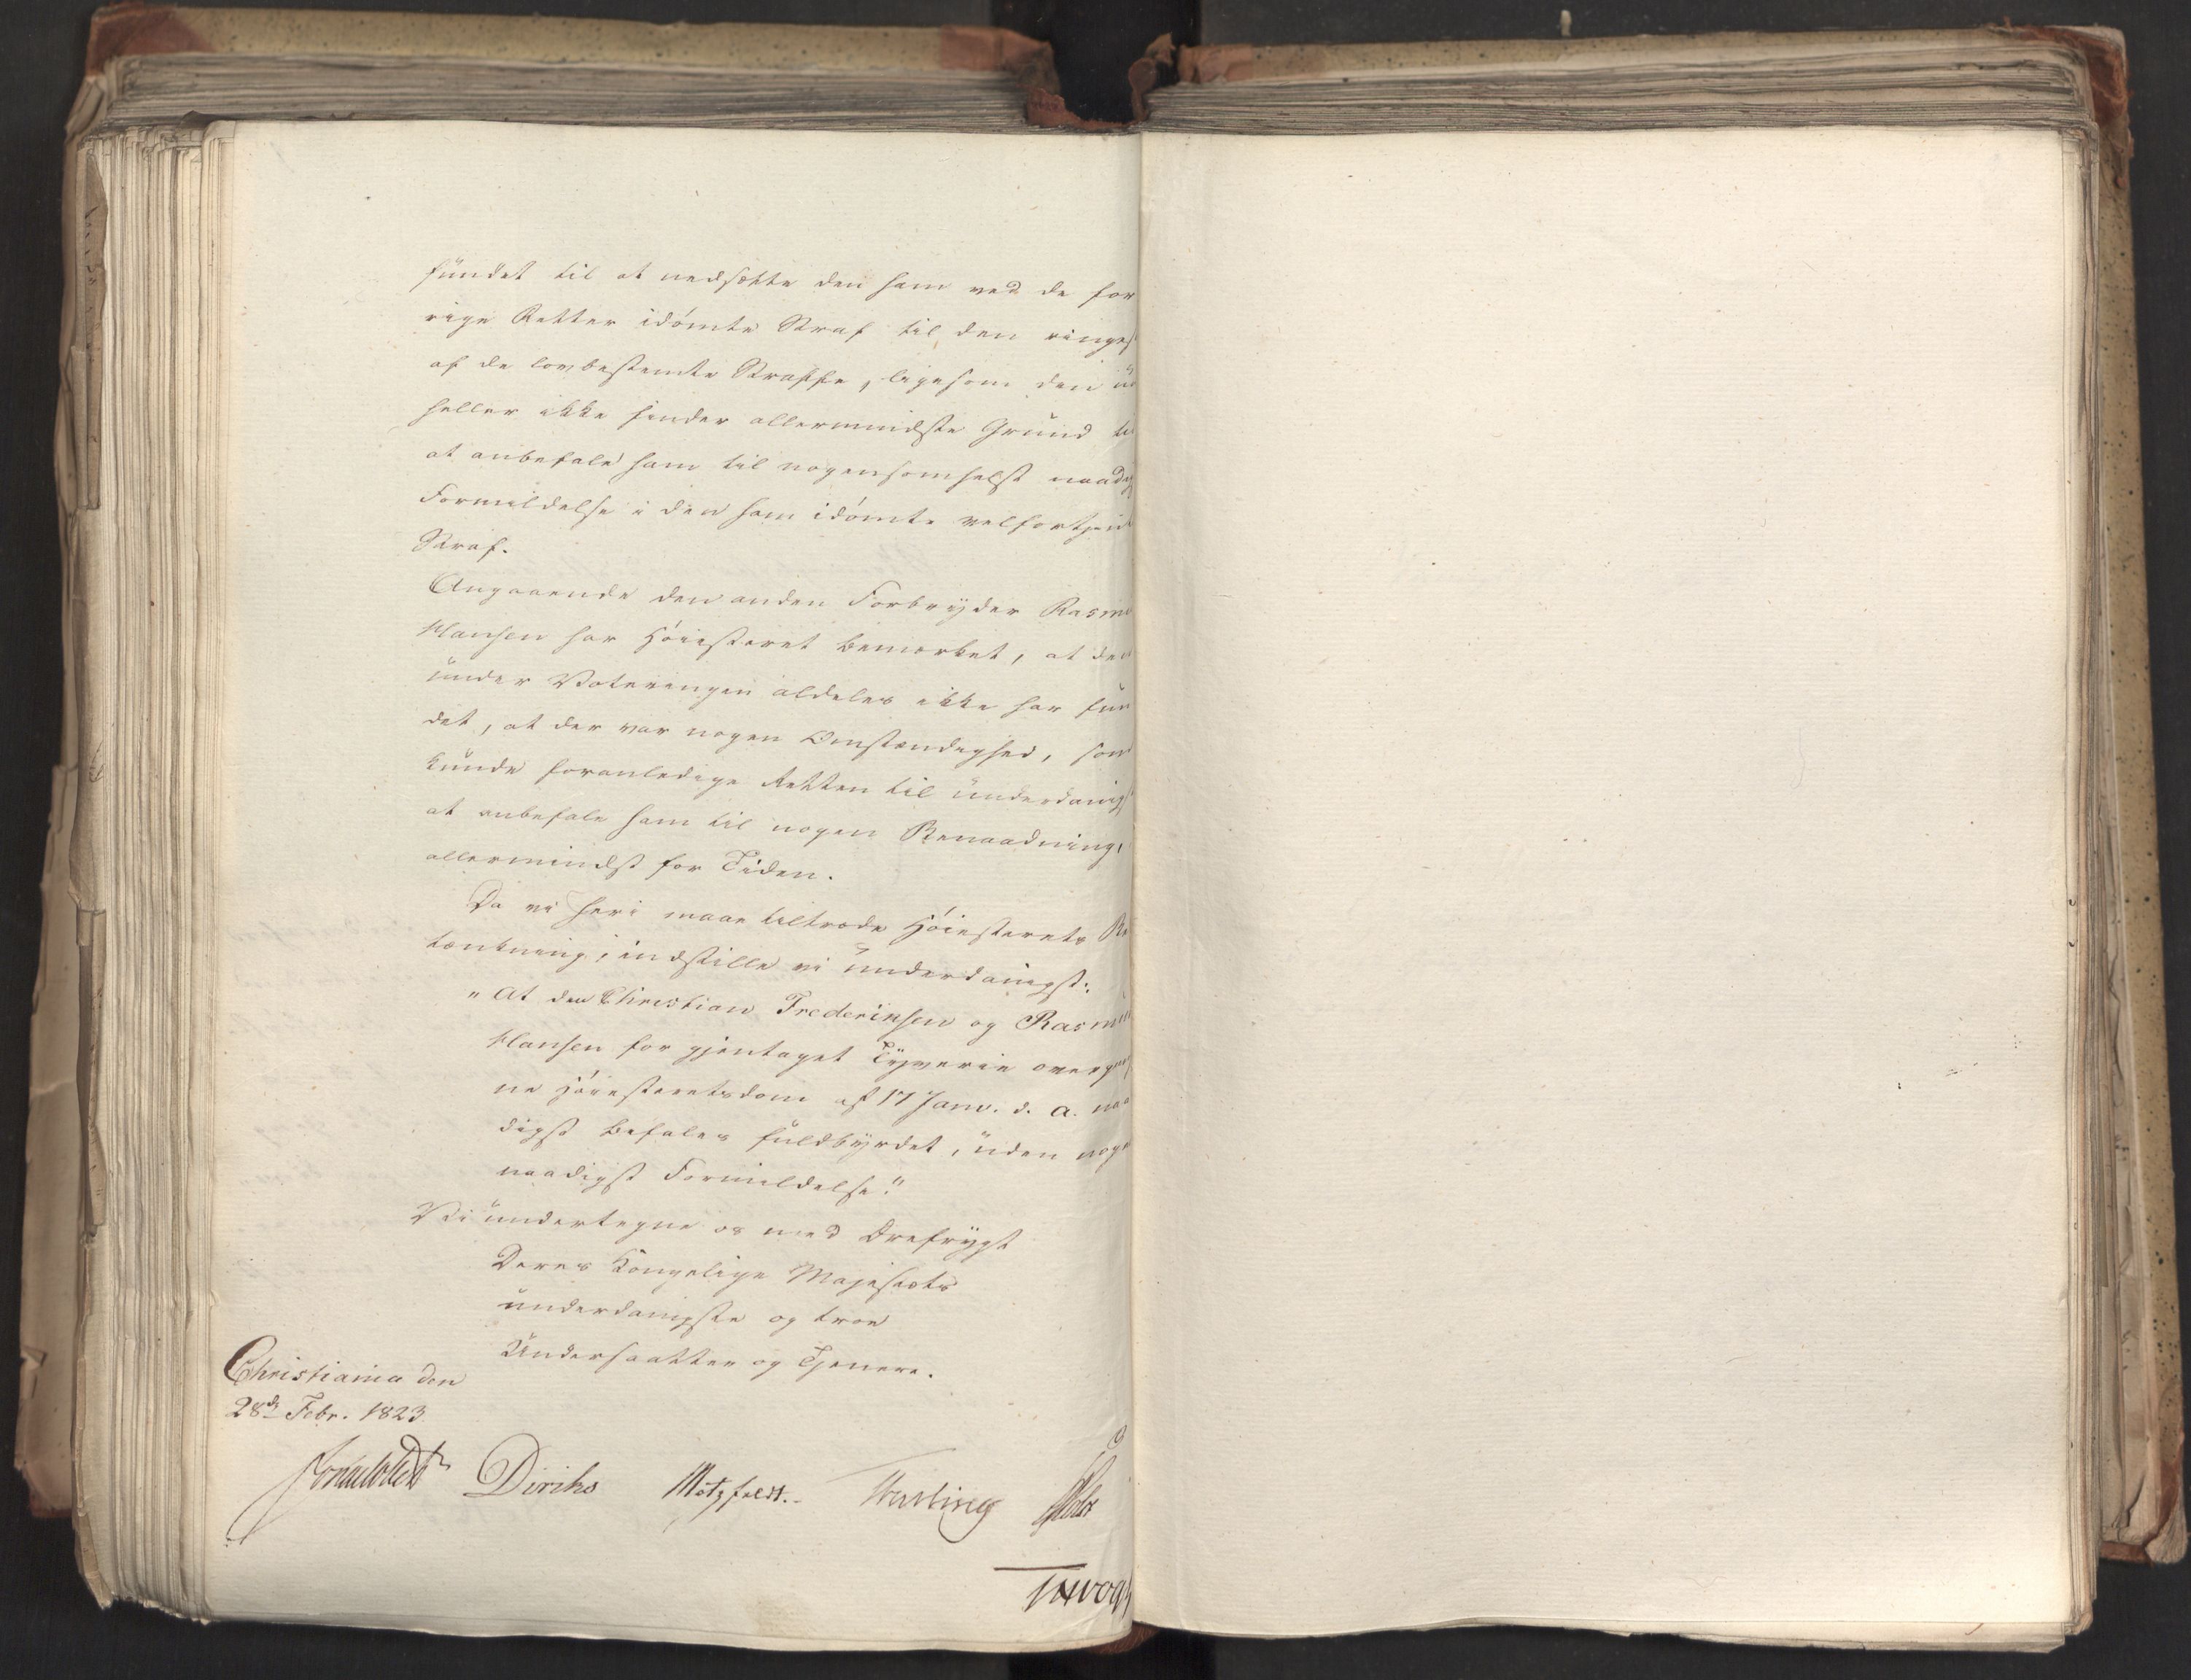 fundet til at nedsætte den ham ved de for
rige Retter idömte Straf til den ringes
af de lovbestemte Straffe, ligesom den
heller ikke finder allermindste Grund til
at anbefale ham til nogensomhelst naadig
Formildelse i den ham idömte velfortjent
Straf.
Angaaende den anden Forbryder Rasmu
Hansen har Höiesteret bemærket, at den
under Voteringen aldeles ikke har fun
det, at der var nogen Omstændighed, som
kunde foranledige Retten til underdanigst
at anbefale ham til nogen Benaadning,
allermindst for Tiden.
Da vi heri maae tiltræde Höiesterets Be
tænkning, indstille vi underdanigst:
"At den Christian Frederiksen og Rasmu
Hansen for gjentaget Tyverie overgang
ne Höiesteretsdom af 17 Janv. d. a. naa
digst befales fuldbyrdet, uden nogen
naadigst Formildelse."
Vi undertegne os med Ærefrygt
Deres Kongelige Majestæts
underdanigste og troe
Undersaatter og Tjenere.
Christiania den
28de Febr. 1823
Diriks Motzfeldt.